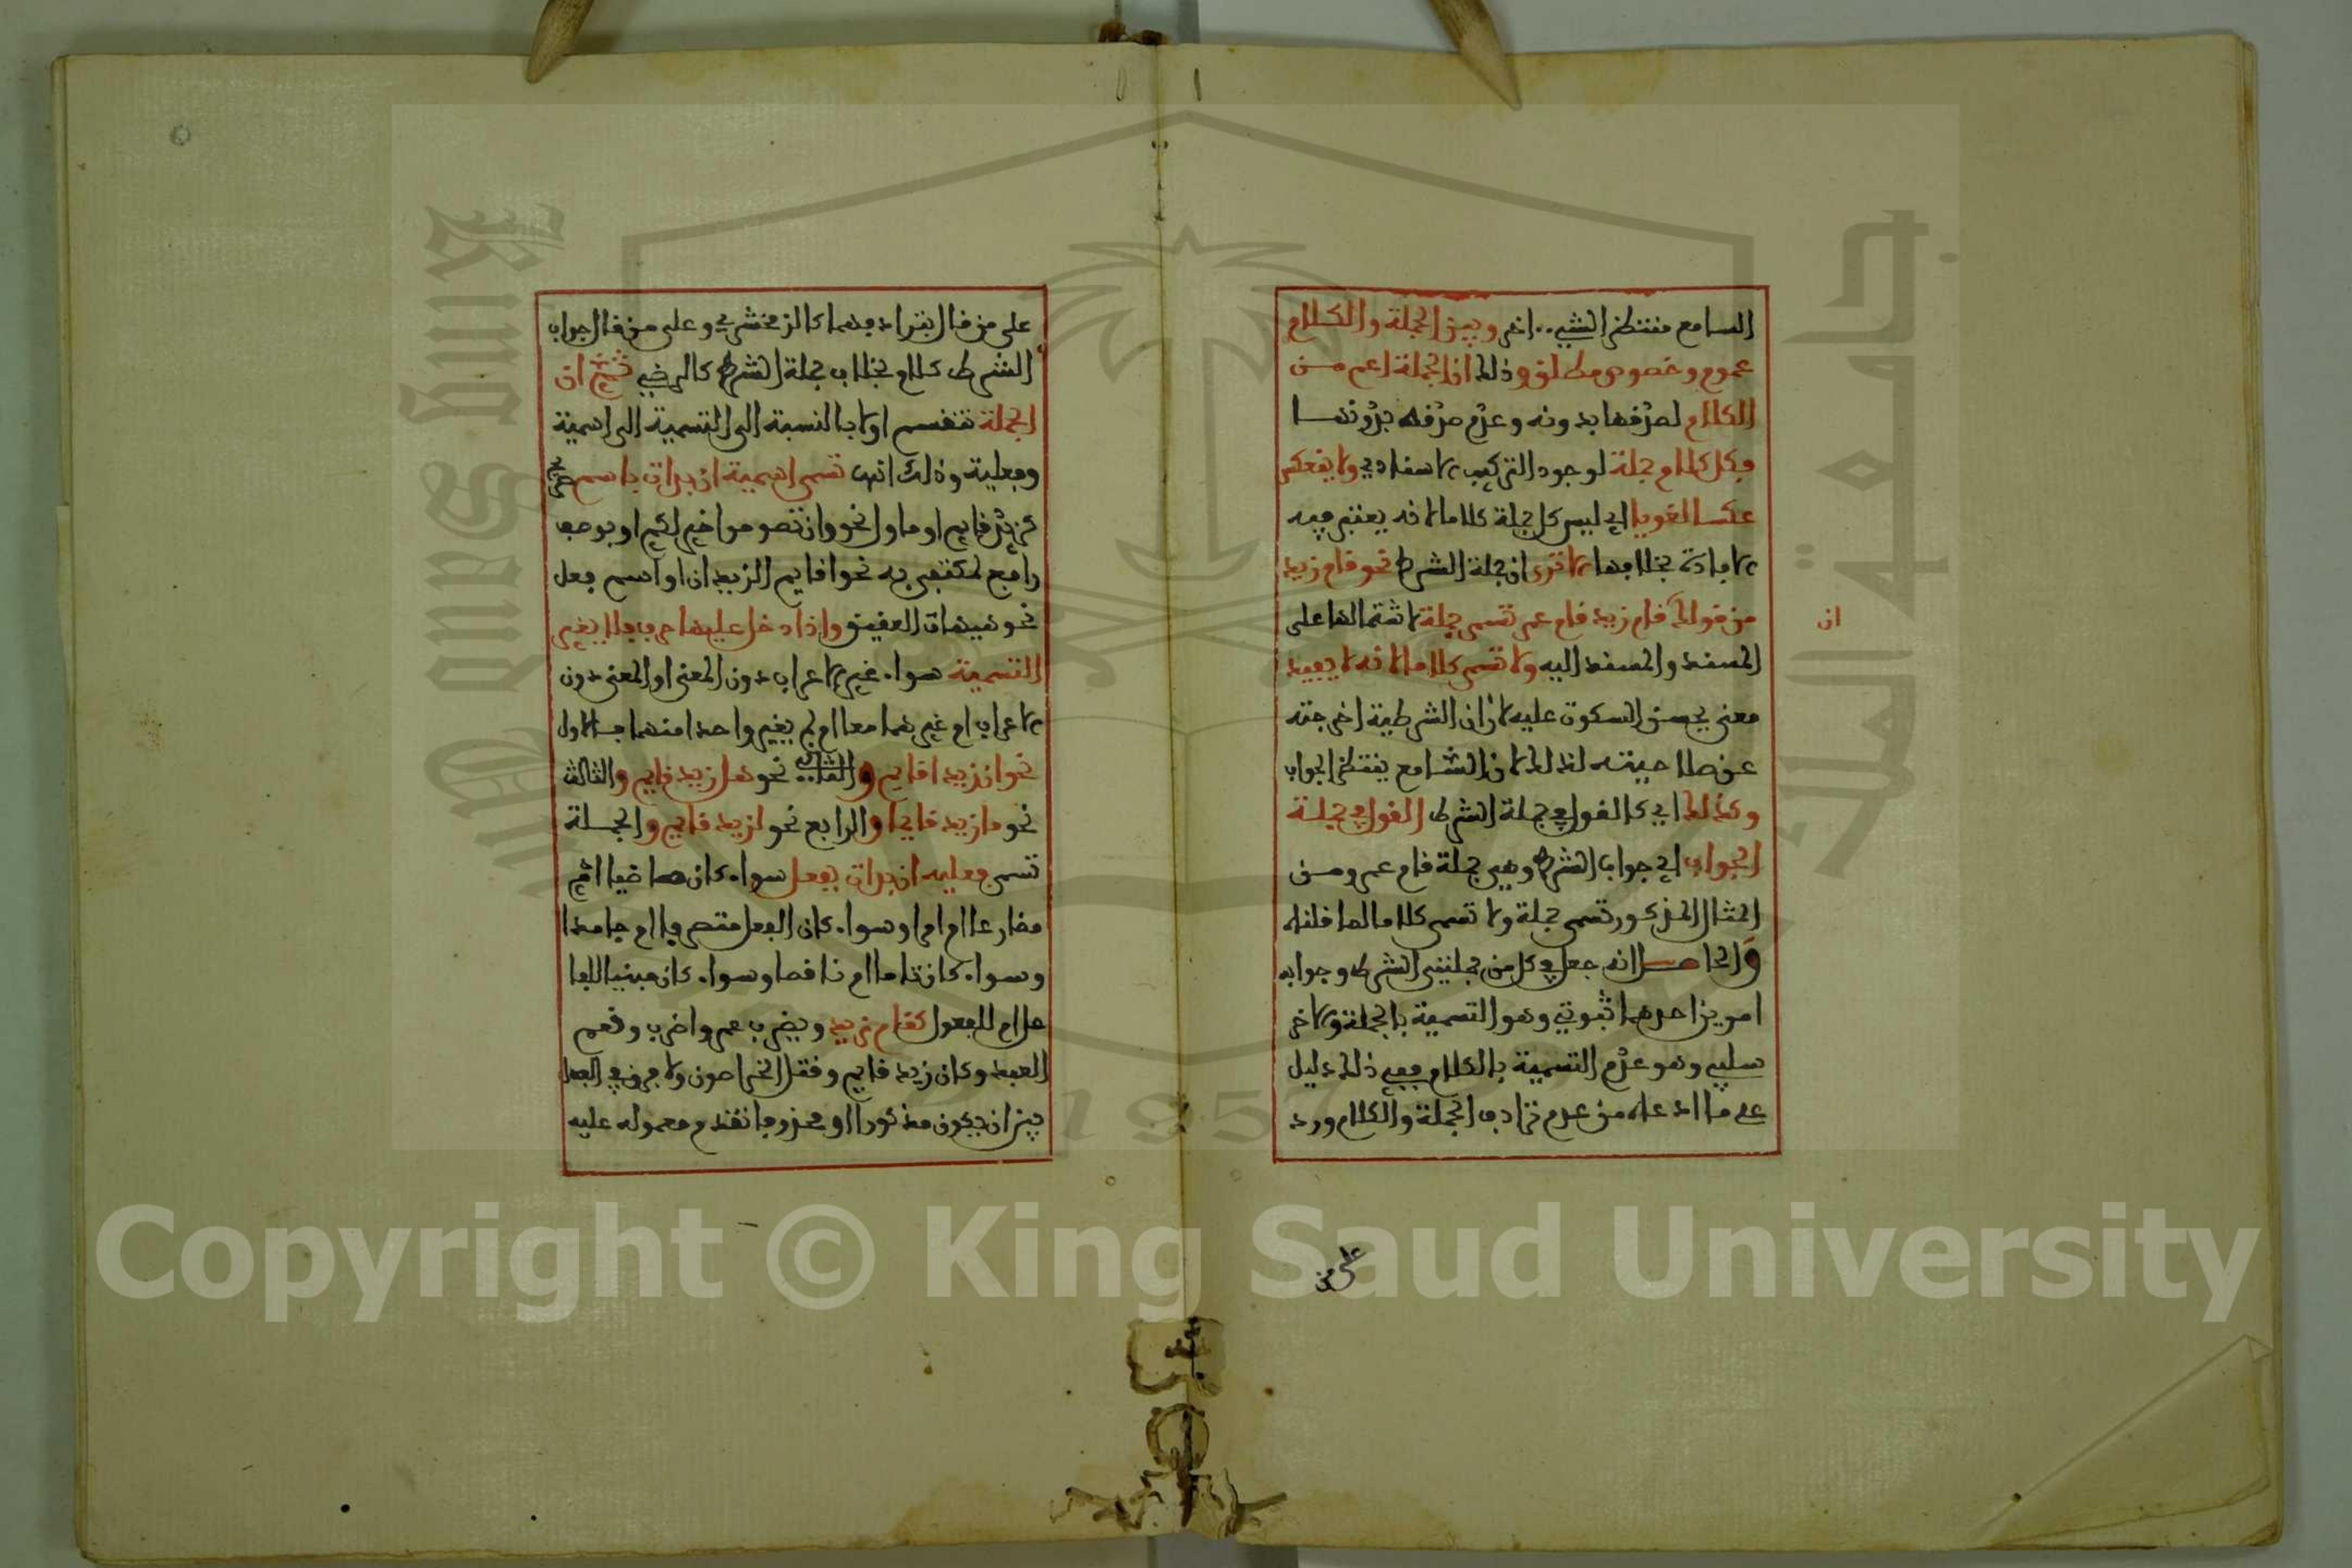 السامع منتظر الشيء اخر وبين الجملة والكلام
عموم وخصوص مطلق وذلك ان الجملة اعم من
الكلام لصدقها بدونه وعدم صدقه بدونها
فكل كلام جملة لوجود التركيب الاسنادي ولا ينعكس
عكسا لغويا اي ليس كل جملة كلاما لانه يعتبر فيه
الافادة بخلافها الا ترى ان جملة الشرط نحو قام زيد
من قولك قام زيد قام عمر تسمى جملة لاشتمالها على
ان
المسند والمسند اليه ولا تسمى كلاما لانه لا يفيد
معنى يحسن السكوت عليه لان ان الشرطية اخرجته
عن صلاحيته لذلك لان السامع ينتظر الجواب
وكذلك اي كالقول في جملة الشرط القول في جملة
الجواب اي جواب الشرط وهي جملة قام عمرو من
المثال المذكور تسمى جملة ولا تسمى كلاما لما قلناه
والحاصل انه جعل في كل من جملتي الشرط وجوابه
امرين احدهما ثبوتي وهو التسمية بالجملة والاخر
سلبي وهو عدم التسمية بالكلام ففي ذلك دليل
على ما ادعاه من عدم ترادف الجملة والكلام ورد
على من
على من قال بترادفهما كالزمخشري وعلى من قال جواب
الشرط كلام بخلاف جملة الشرط كالرضي ثم ان
الجملة تنقسم اولا بالنسبة الى التسمية الى اسمية
وفعلية وذلك انها تسمى اسمية ان بدات باسم صريح
كزيد قايم او ماول نحو وان تصوموا خير لكم او بوصف
رافع لمكتفى به نحو اقايم الزيدان او اسم فعل
نحو هيهات العقيق واذا دخل عليها حرف فلا يغير
التسمية سواء غير الاعراب دون المعنى او المعنى دون
الاعراب ام غيرهما معا ام لم يغير واحدا منهما فالاول
نحو ان زيدا قايم والثاني نحو هل زيد قايم والثالث
نحو ما زيد قايما والرابع نحو لزيد قايم والجملة
تسمى فعليه ان بدات بفعل سواء كان ماضيا ام
مضارعا ام امرا وسواء كان الفعل متصرفا ام جامدا
وسواء كان تاما ام ناقصا وسواء كان مبنيا للفا
عل ام للمفعول كقام زيد ويضرب عمر واضرب ونعم
العبد وكان زيد قايم وقتل الخراصون ولا فرق في الفعل
بين ان يكون مذكورا او محذوفا تقدم معموله عليه